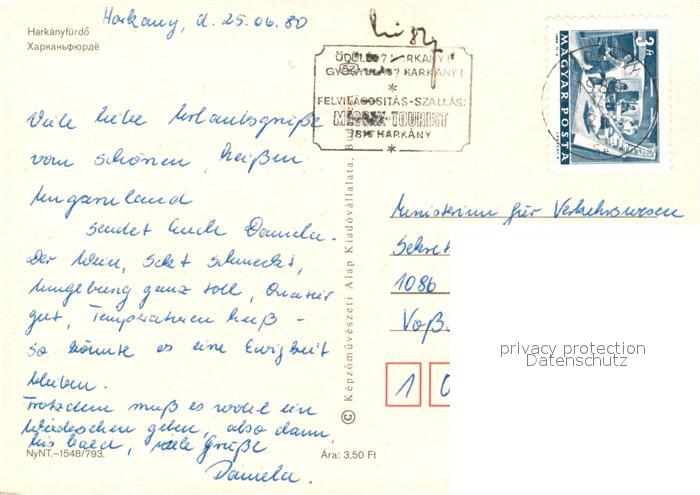 Harkány, d. 25.06.80
Harkányfürdő
Харканьфюрдё
ÜDÜLÉS? HARKÁNY!
GYÓGYULÁS? HARKÁNY!
FELVILÁGOSITÁS-SZÁLLÁS:
MECSEK-TOURIST
7815 HARKÁNY
3 Ft
MAGYAR POSTA
Viele liebe Urlaubsgrüße
vom schönen, heißen
Ungarnland
sendet Euch Daniela.
Der Wein, Sekt schmeckt,
Umgebung ganz toll, Quartier
gut, Temperaturen heiß -
so könnte es eine Ewigkeit
bleiben.
Trotzdem muß es wohl ein
Wiedersehen geben, also dann,
bis bald, viele Grüße
Daniela.
© Képzőművészeti Alap Kiadóvállalata, Bu
Ministerium für Verkehrswesen
Sekret
1086
Voß
1 0
privacy protection
Datenschutz
NyNT.–1548/793.
Ára: 3,50 Ft